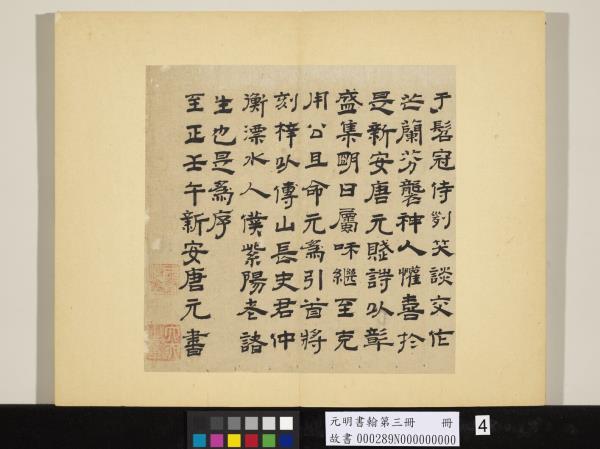 于髫冠侍列笑談交作
芒蘭芬襲神人懽喜於
是新安唐元賤詩以章
盛集明日屬和繼至克
用公且命元為引首將
刻梓以傳山長史君仲
衡溧水人僕紫陽老諸
生也是為序
至正壬午新安唐元書
元明書翰第三冊 冊
故書 000289N000000000
4